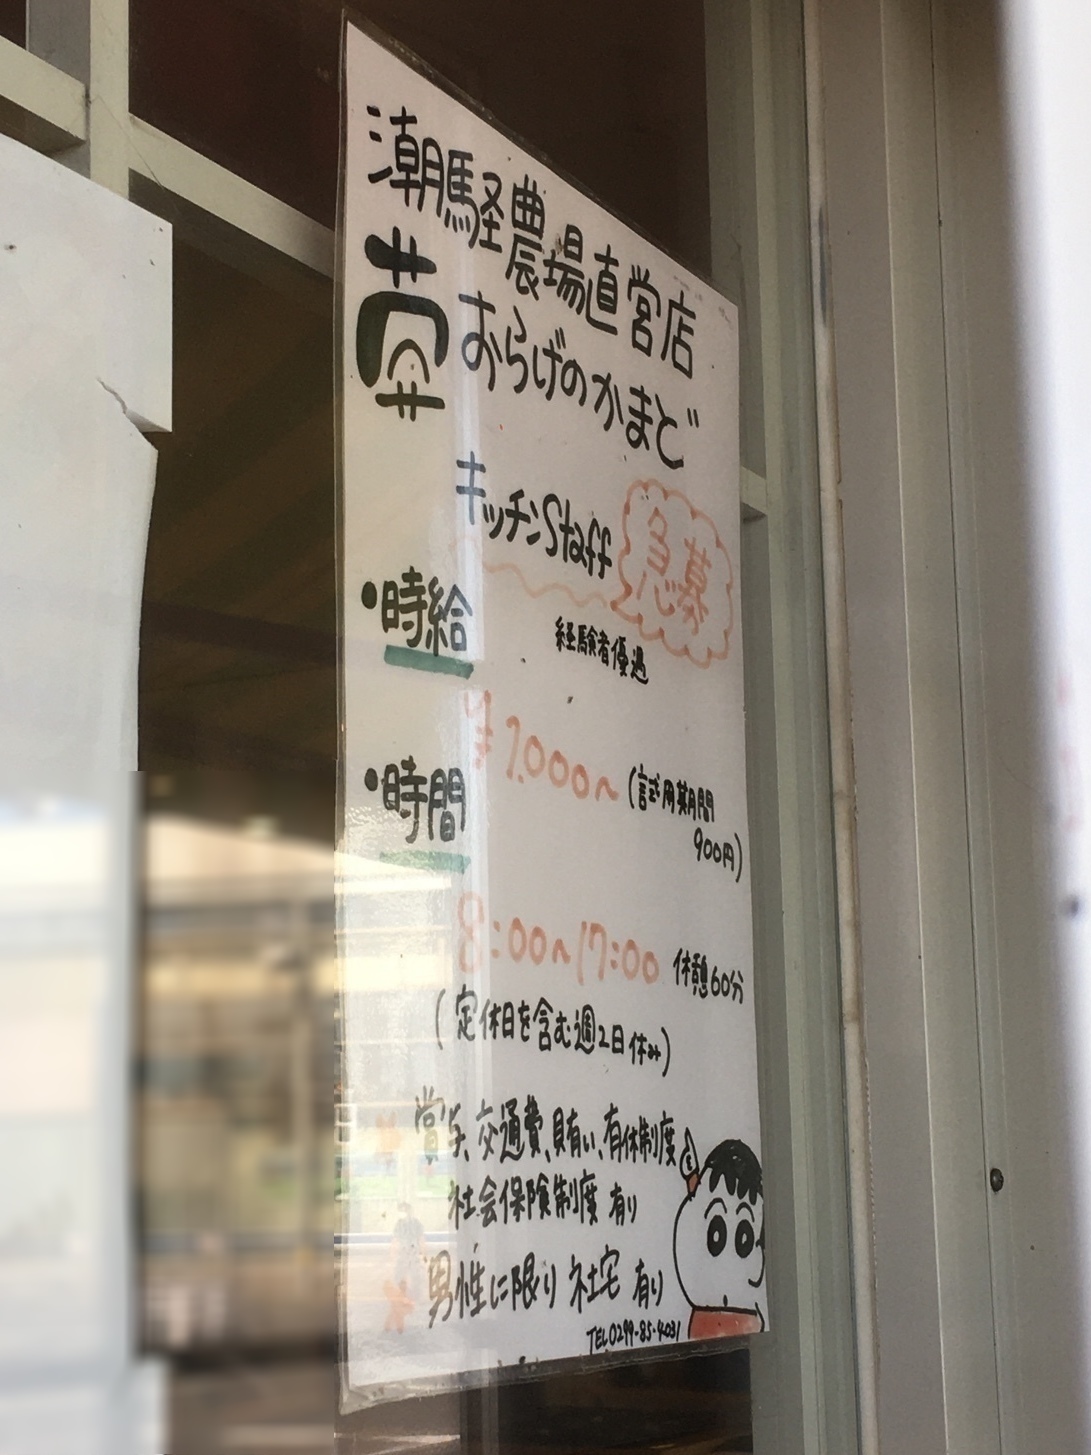 潮騒経農場直営店
おらげのかまど
キッチンStaff
急募
・時給
経験者優遇
¥1.000～(試用期間
900円)
・時間
8:00～17:00 休憩60分
(定休日を含む週2日休み)
賞与、交通費、賄い、有休制度
社会保険制度 有り
男性に限り 社宅 有り
TEL0299-85-4031